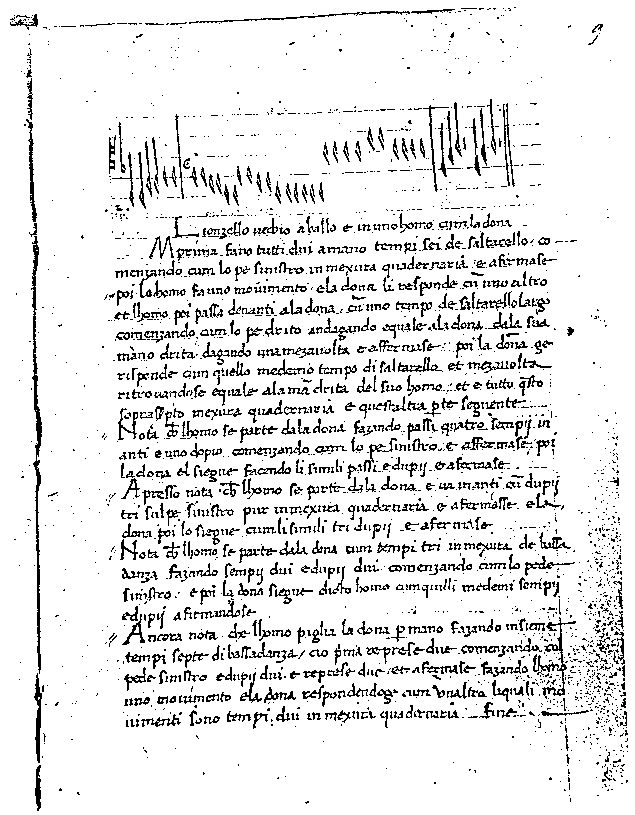 9
Lionzello vechio a ballo e in uno homo cum la dona
In prima fano tutti dui a mano tempi sei de saltarello . co
menzando cum lo pe sinistro in mexura quadernaria . e afermase
poi lo homo fa uno movimento . e la dona li responde cū uno altro
et lhomo poi passa denanti a la dona . cū uno tempo de saltarello largo
comenzando cum lo pe drito andagando equale a la dona . dala sua
mano drita . dagando una mezavolta e affermase . poi la dona ge
risponde cum quello medemo tempo di saltarello et mezavolta
ritrovandose equale a la mā drita del suo homo . et e tutto q̄sto
soprascpto mexura quadernaria e questaltra pte seguente
Nota ch̄ lhomo se parte da la dona fazando passi quatro sempij in
anti e uno dopio comenzando cum lo pe sinistro . e affermase . poi
la dona el siegue facendo li simili passi e dupij e afermase
Apresso nota ch̄ lhomo se parte da la dona . e va inanti cū dupij
tri sul pe sinistro pur in mexura quadernaria e afermasse e la
dona poi lo siegue cum li simili tri dupij e afermase
Nota ch̄ lhomo se parte da la dona cum tempi tri in mexura de bassa
danza fazando sempij dui e dupij dui . comenzando cum lo pede
sinistro . e poi la dona siegue dicto homo cum quilli medemi sempij
e dupij afirmandose
Ancora nota . che lhomo piglia la dona p mano fazando insieme
tempi septe di bassadanza / cio p̄ma represe due comenzando col
pede sinistro e dupij dui . e represe due . et afermase fazando lhomo
uno movimento e la dona respondendoge cum unaltro liquali mo
vimenti sono tempi dui in mexura quadernaria fine